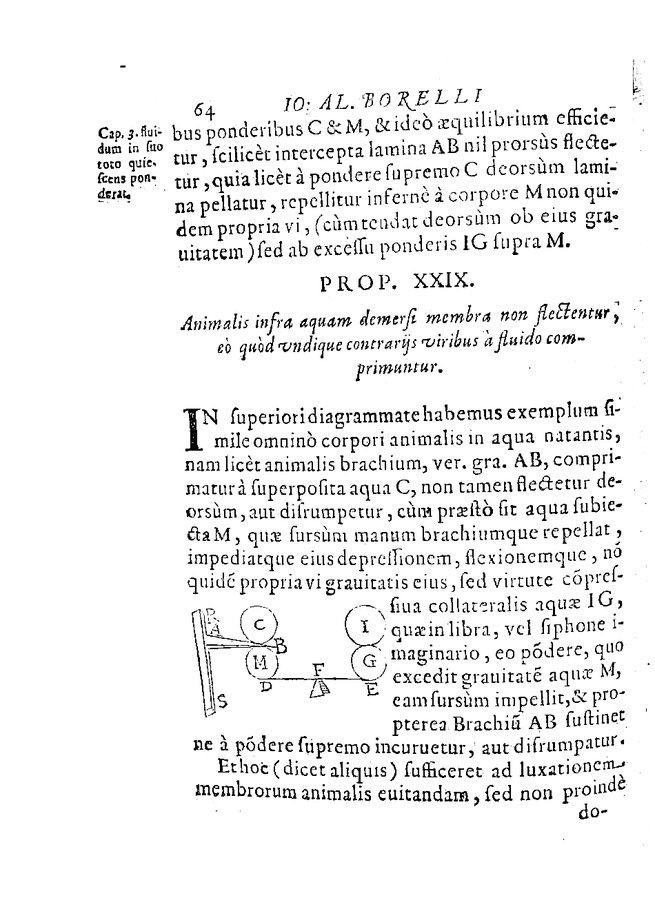 64
IO: AL. BORELLI
Cap. 3. flui-
dum in ſuo
toto quie-
ſcens pon-
derat.
bus ponderibus C & M, & ideò æquilibrium efficie-
tur, ſcilicèt intercepta lamina AB nil prorsùs flecte-
tur, quia licèt à pondere ſupremo C deorsùm lami-
na pellatur, repellitur infernè à corpore M non qui-
dem propria vi, (cùm tendat deorsùm ob eius gra-
uitatem) ſed ab exceſſu ponderis IG ſupra M.
PROP. XXIX.
Animalis infra aquam demerſi membra non flectentur,
eò quòd vndique contrarijs viribus à fluido com-
primuntur.
IN ſuperiori diagrammate habemus exemplum ſi-
mile omninò corpori animalis in aqua natantis,
nam licèt animalis brachium, ver. gra. AB, compri-
matur à ſuperpoſita aqua C, non tamen flectetur de-
orsùm, aut diſrumpetur, cùm præſtò ſit aqua ſubie-
cta M, quæ ſursùm manum brachiumque repellat,
impediatque eius depreſſionem, flexionemque, nõ
quidẽ propria vi grauitatis eius, ſed virtute cõpreſ-
ſiua collateralis aquæ IG,
quæ in libra, vel ſiphone i-
maginario, eo põdere, quo
excedit grauitatẽ aquæ M,
eam ſursùm impellit, & pro-
pterea Brachiũ AB ſuſtinet
R
A
C
B
M
D
F
I
G
E
S
ne à põdere ſupremo incuruetur, aut diſrumpatur.
Et hoc (dicet aliquis) ſufficeret ad luxationem
membrorum animalis euitandam, ſed non proindè
do-